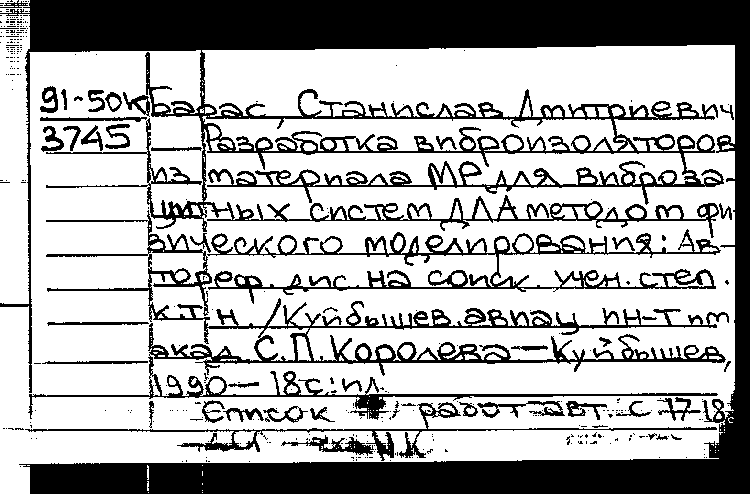 91-50к Барас, Станислав Дмитриевич
3745 Разработка виброизоляторов
из материала МР для виброза-
щитных систем ДЛА методом фи-
зического моделирования: Ав-
тореф. дис. на соиск. учен. степ.
к.т.н. / Куйбышев. авиац ин-т им.
акад С.П. Королева — Куйбышев,
1990 — 18 с: ил
Список работ авт. с 17-18